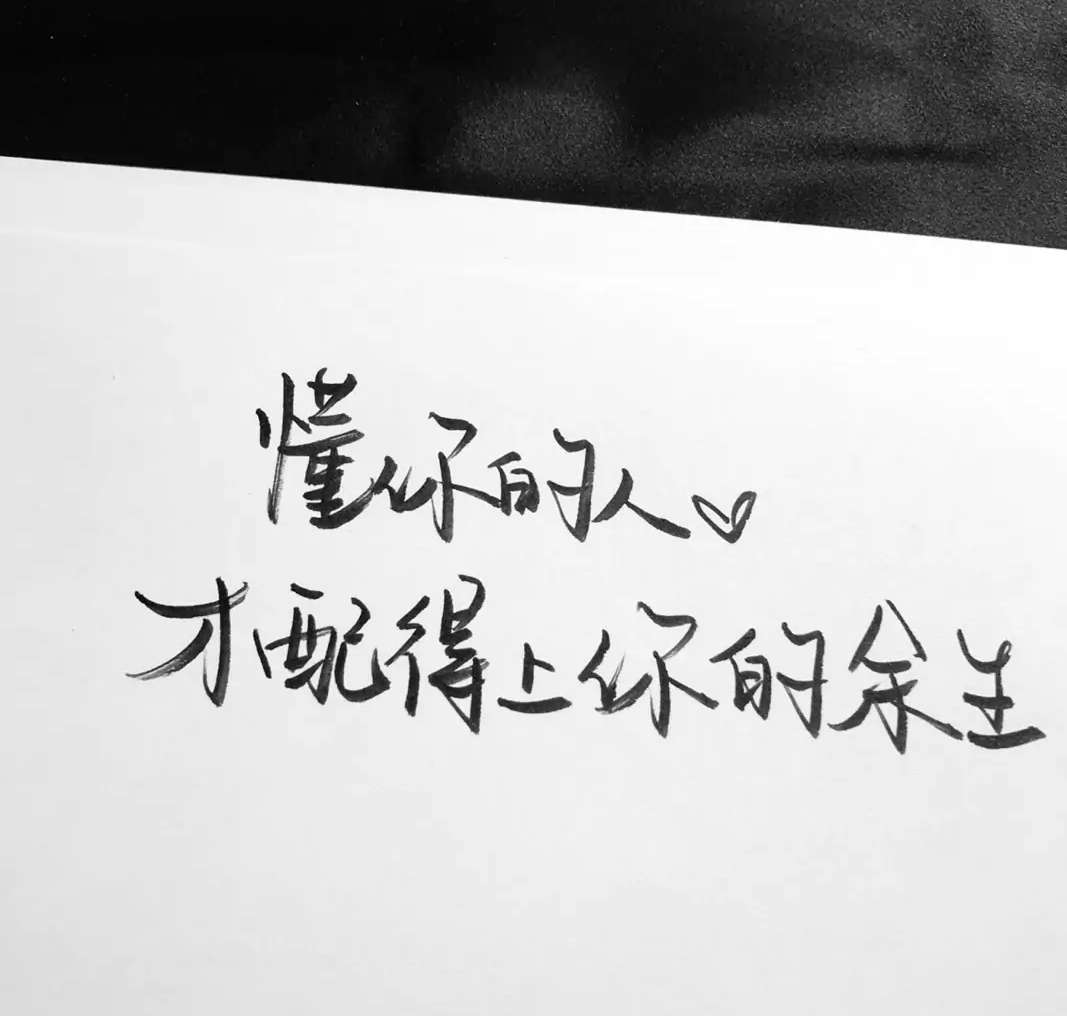 懂你的人♡
才配得上你的余生